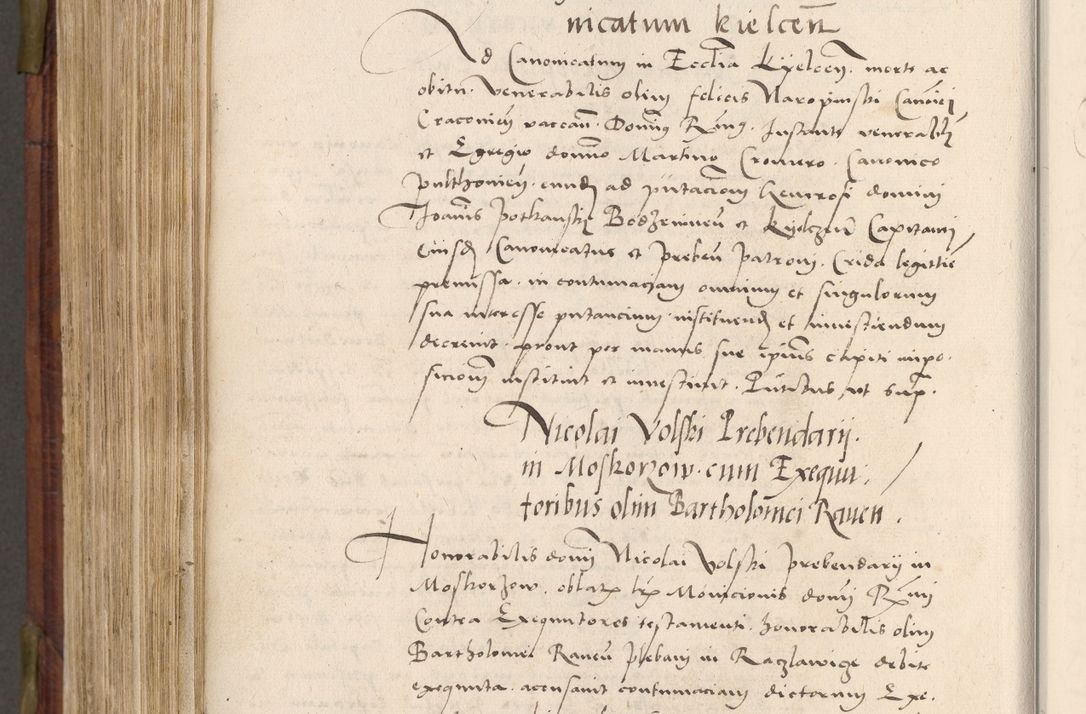 nicatum kielcen̄
Ad Canonicatum in Ecclīa Kyelcen̄. morte ac
obitu. Venerabilis olim felicis Naropinski Canōici
Cracovien̄ vacān. Domin9 Rm̄9. Instante venerabli
et Egregio domīno Martino Cromero. Canonico
pulthovien̄. eundē ad pn̄tacīom Generosi domini
Joānis potkanski Bodzeninen̄ et kyelczen̄ Capitanei
Eiusdē Canonicatus et preben̄ patroni. Crida legittīe
premissa. in contumaciam omnium et singulorum
sua interesse putancium. instituendū et investiendum
decrevit. prout per manus sue ipīus capiti impo.
sicionē instituit et investivit. Pn̄tibus, ut supra.
Nicolai Volski Prebendarij.
in Moskorzow. cum Exequu.
toribus olim Bartholomei Raven.
Honorabilis domī Nicolai Volski prebendarij in
Moskorzow. oblatis lrīs Monicionis domī Rm̄i
Contra Exequutores testamenti. honorabilis olim
Bartholomei Raven̄ plebani in Raczlawige debite
exequuta. accusavit contumaciam dictorum Exe.